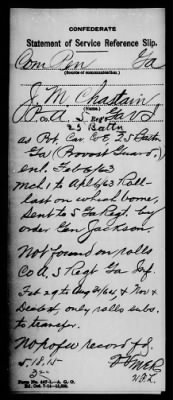 CONFEDERATE
Statement of Service Reference Slip.
Com Pen Ga
(Source of communication.)
J. M. Chastain
(Name.)
Co. A 5 Ga
23 Battn
as Pvt Co. E, 25 Battn
Ga (Provost Guard),
enl. Feb 6/63
Mch 1 to Apl 6/63 Roll-
last on which borne,
sent to 5 Ga Regt. by
order Gen Jackson.
Not found on rolls
Co A 5 Regt Ga Inf.
Feb 29 to Aug 31/64 & Nov &
Dec/64, only rolls subs.
to transfer.
No pof w record fd.
5.18.15
Form No. 447-1—A. G. O.